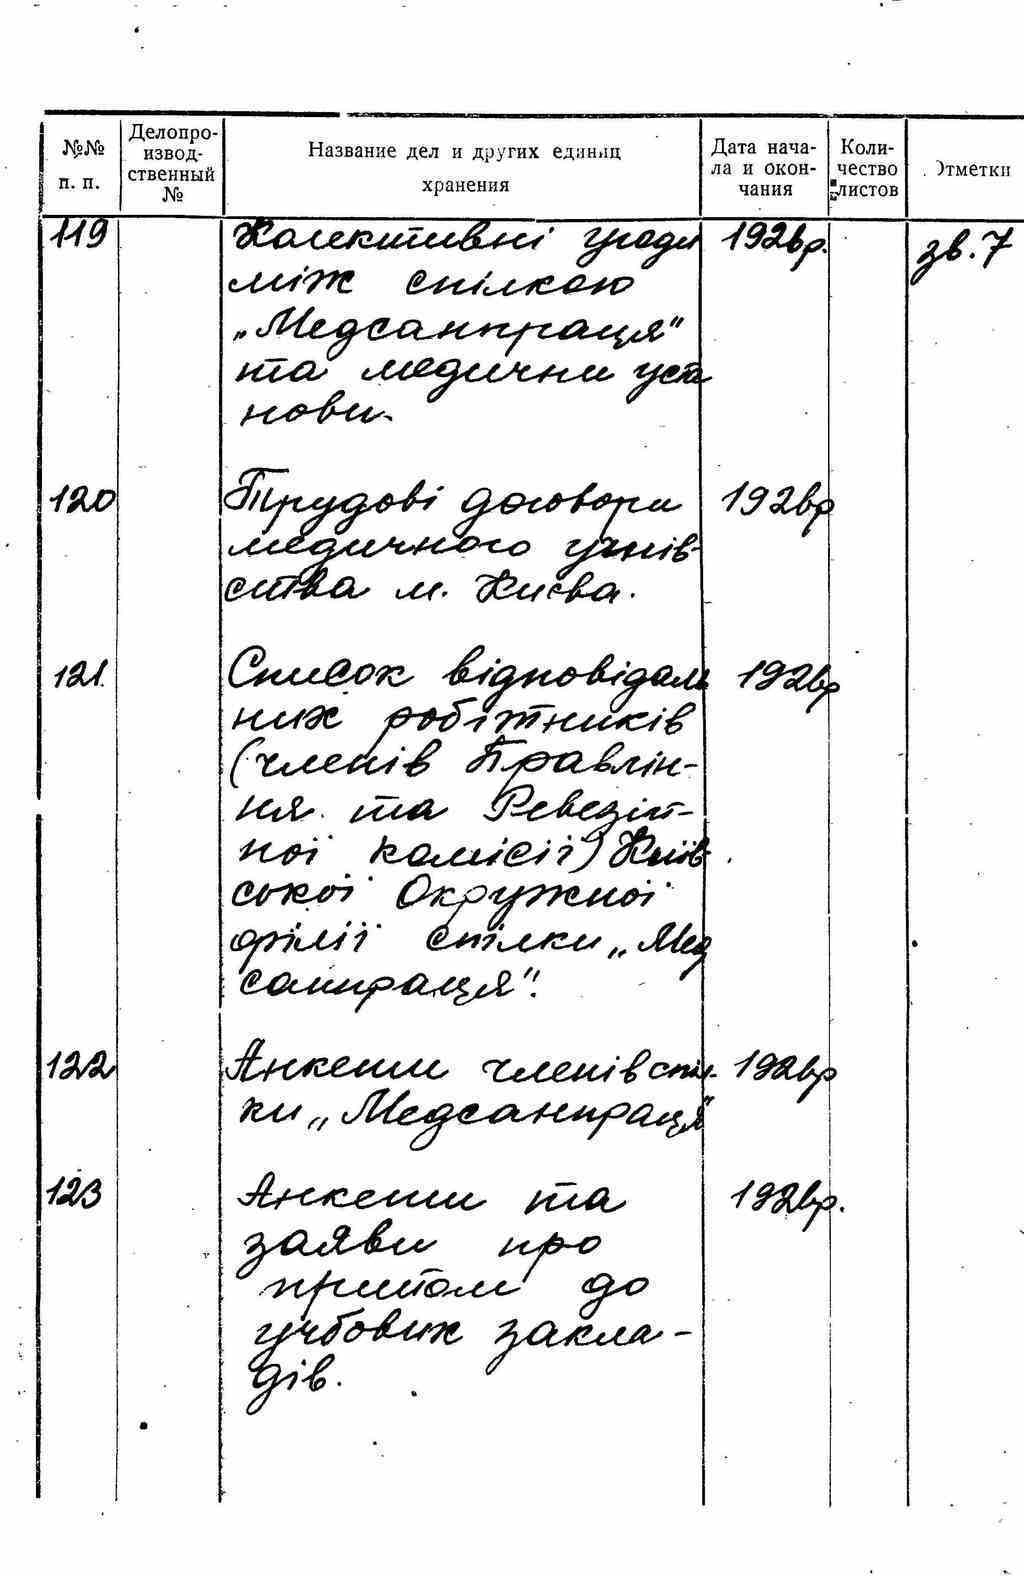 №№ п. п.
Делопро-
извод-
ственный
№
Название дел и других единиц
хранения
Дата нача-
ла и окон-
чания
Коли-
чество
листов
Отметки
119 Колективні угоди 1926р. зв. 7
між спілкою
„Медсанпраця"
та медични уста
нови.
120 Трудові договори 1926р
медичного учнів-
ства м. Києва.
121. Список відповідаль 1926р
них робітників
(членів Правлін-
ня та Ревезій-
ної комісії) Київ-
ської Окружної
філії спілки „Мед
санпраця".
122 Анкети членів спіл- 1926р
ки „Медсанпраця"
123 Анкети та 1926р.
заяви про
прийом до
учбовик закла-
дів.